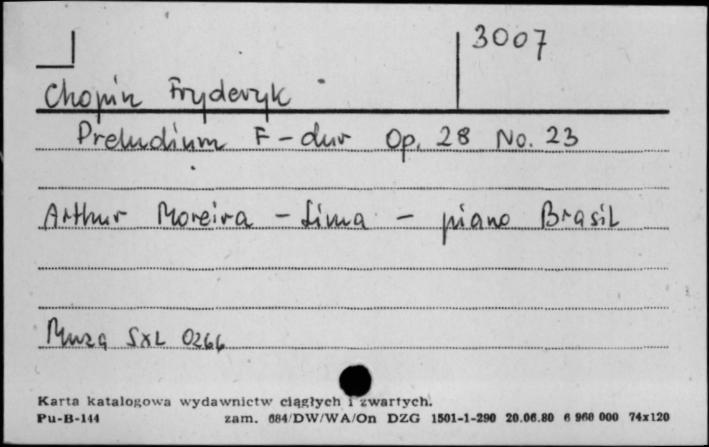 3007
Chopin Fryderyk
Preludium F-dur Op. 28 No. 23
Arthur Moreira - Lima - piano Brasil
Muza SXL 0266
Karta katalogowa wydawnictw ciągłych i zwartych.
Pu-B-144 zam. 684/DW/WA/On DZG 1501-1-290 20.06.80 6 960 000 74x120